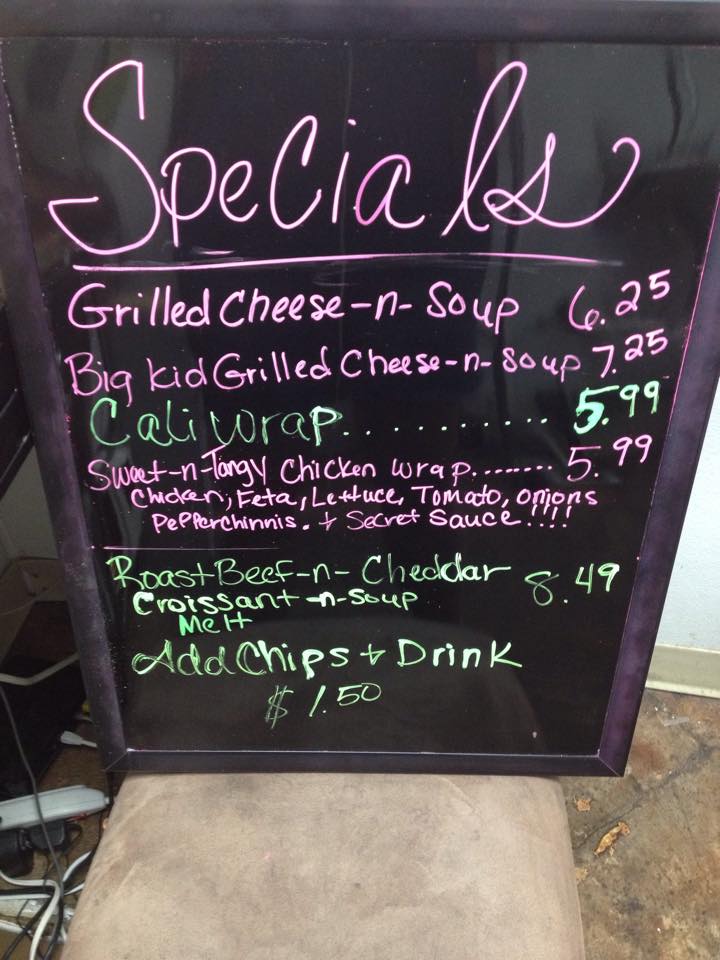 Specials
Grilled Cheese-n-Soup 6.25
Big Kid Grilled Cheese-n-Soup 7.25
Cali Wrap.......... 5.99
Sweet-n-Tangy Chicken Wrap........ 5.99
Chicken, Feta, Lettuce, Tomato, onions
Pepperchinnis. + Secret Sauce!!!!
Roast Beef-n-Cheddar 8.49
Croissant-n-Soup
Melt
Add Chips + Drink
$1.50